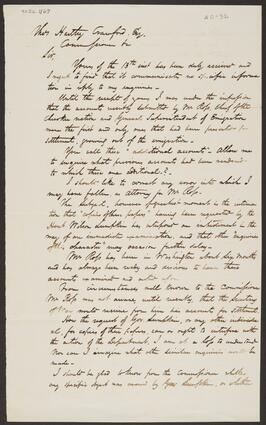 Thos Hartley Crawford, Esq.
Commissioner &c
Sir,
Yours of the 18th inst has been duly received and
I regret to find that it communicates no specific information
in reply to my enquiries.
Until the receipt of yours I was under the impression
that the accounts recently submitted by Mr Ross Chief of the
Cherokee nation and General Superintendent of Emigration
were the first and only ones that had been presented for
settlement, growing out of the emigration.
You call this "additional accounts". Allow me
to enquire what previous accounts had been rendered
to which these are additional?
I should like to correct any error into which I
may have fallen as attorney for Mr Ross.
The subject, however, of greatest moment is the intimation
that "copies of these papers" having been requested by the
Hon
and that other "enquiries
of character" may occasion further delay.
Mr Ross has been in Washington about six months
and has always been ready and desirous to have these
accounts examined and
From circumstances well known to the Commissioner
Mr Ross was not aware, until recently, that the Secretary
of War would receive from him his accounts for settlement.
How the request of or any other individual,
for copies of these papers can or ought to interfere with
the action of the Department, I am at a loss to understand.
Nor can I imagine what other similar inquiries could be
made.
I should be glad to know from the Commissioner whether
any specific object was named by or whether